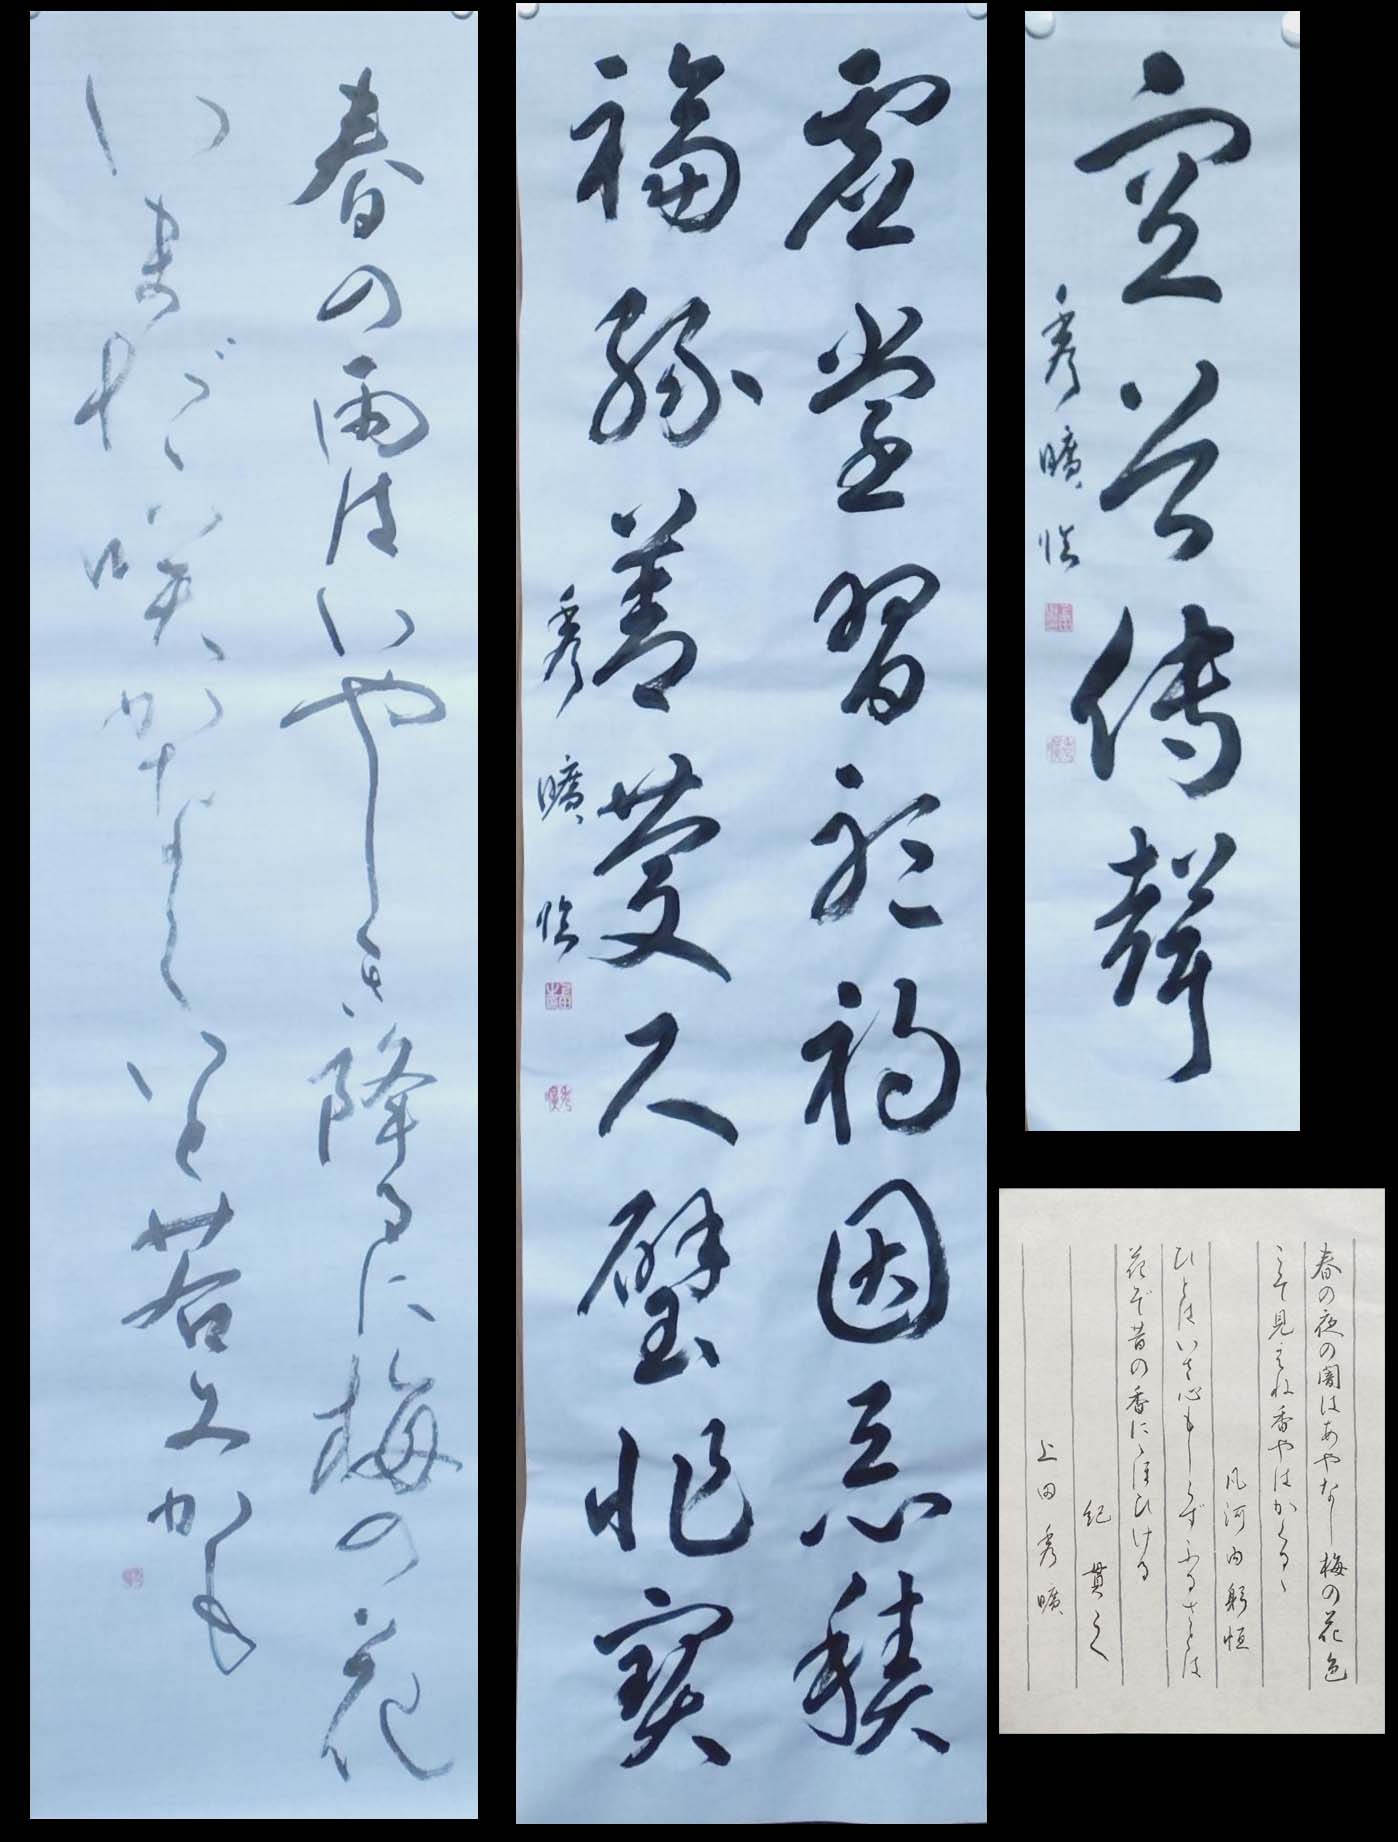 空谷傳聲
秀曠臨
虚堂習聽禍因惡積
福縁善慶尺璧非寶
秀曠臨
春の雨はいやしき降るに梅の花
いまだ咲かなくいと若みかも
春の夜の闇はあやなし梅の花色
こそ見えね香やはかくるゝ
凡河内躬恒
ひとはいさ心もしらずふるさとは
花ぞ昔の香にほひける
紀貫之
上田秀曠